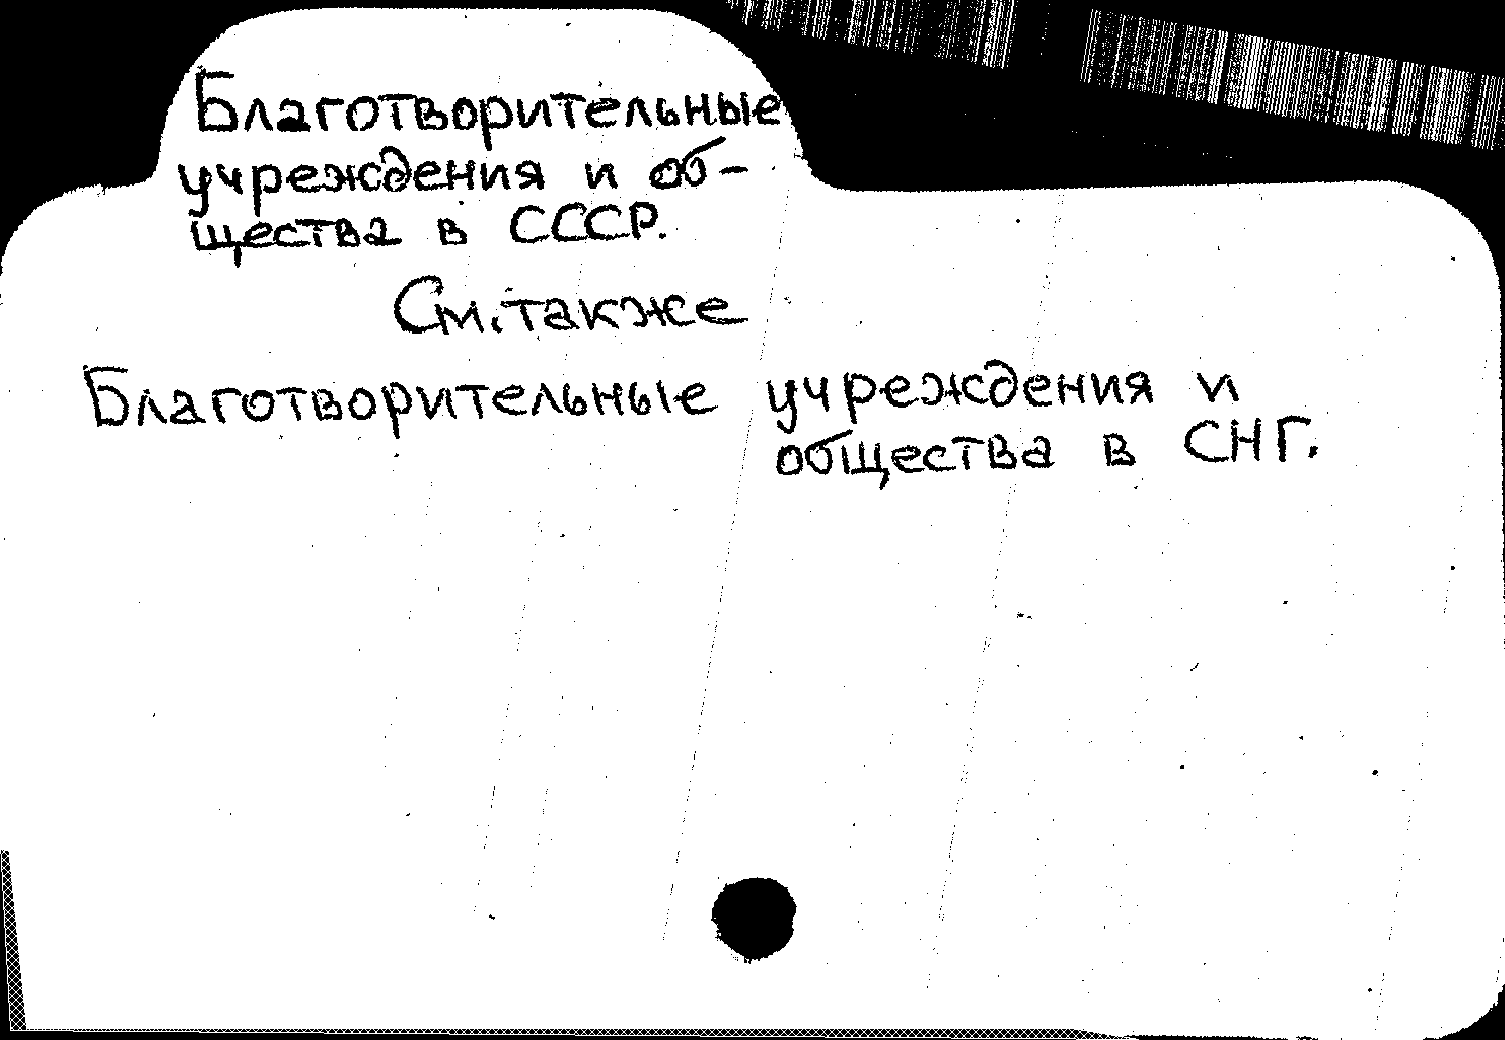 Благотворительные
учреждения и об-
щества в СССР.
См. также
Благотворительные учреждения и
общества в СНГ.